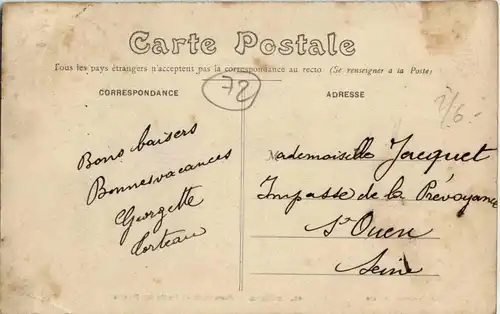 Carte Postale
Tous les pays étrangers n'acceptent pas la correspondance au recto (Se renseigner à la Poste)
CORRESPONDANCE
72
ADRESSE
Bons baisers
Bonnes vacances
Georgette
Mademoiselle Jacquet
Impasse de la Prévoyance
St Ouen
Seine